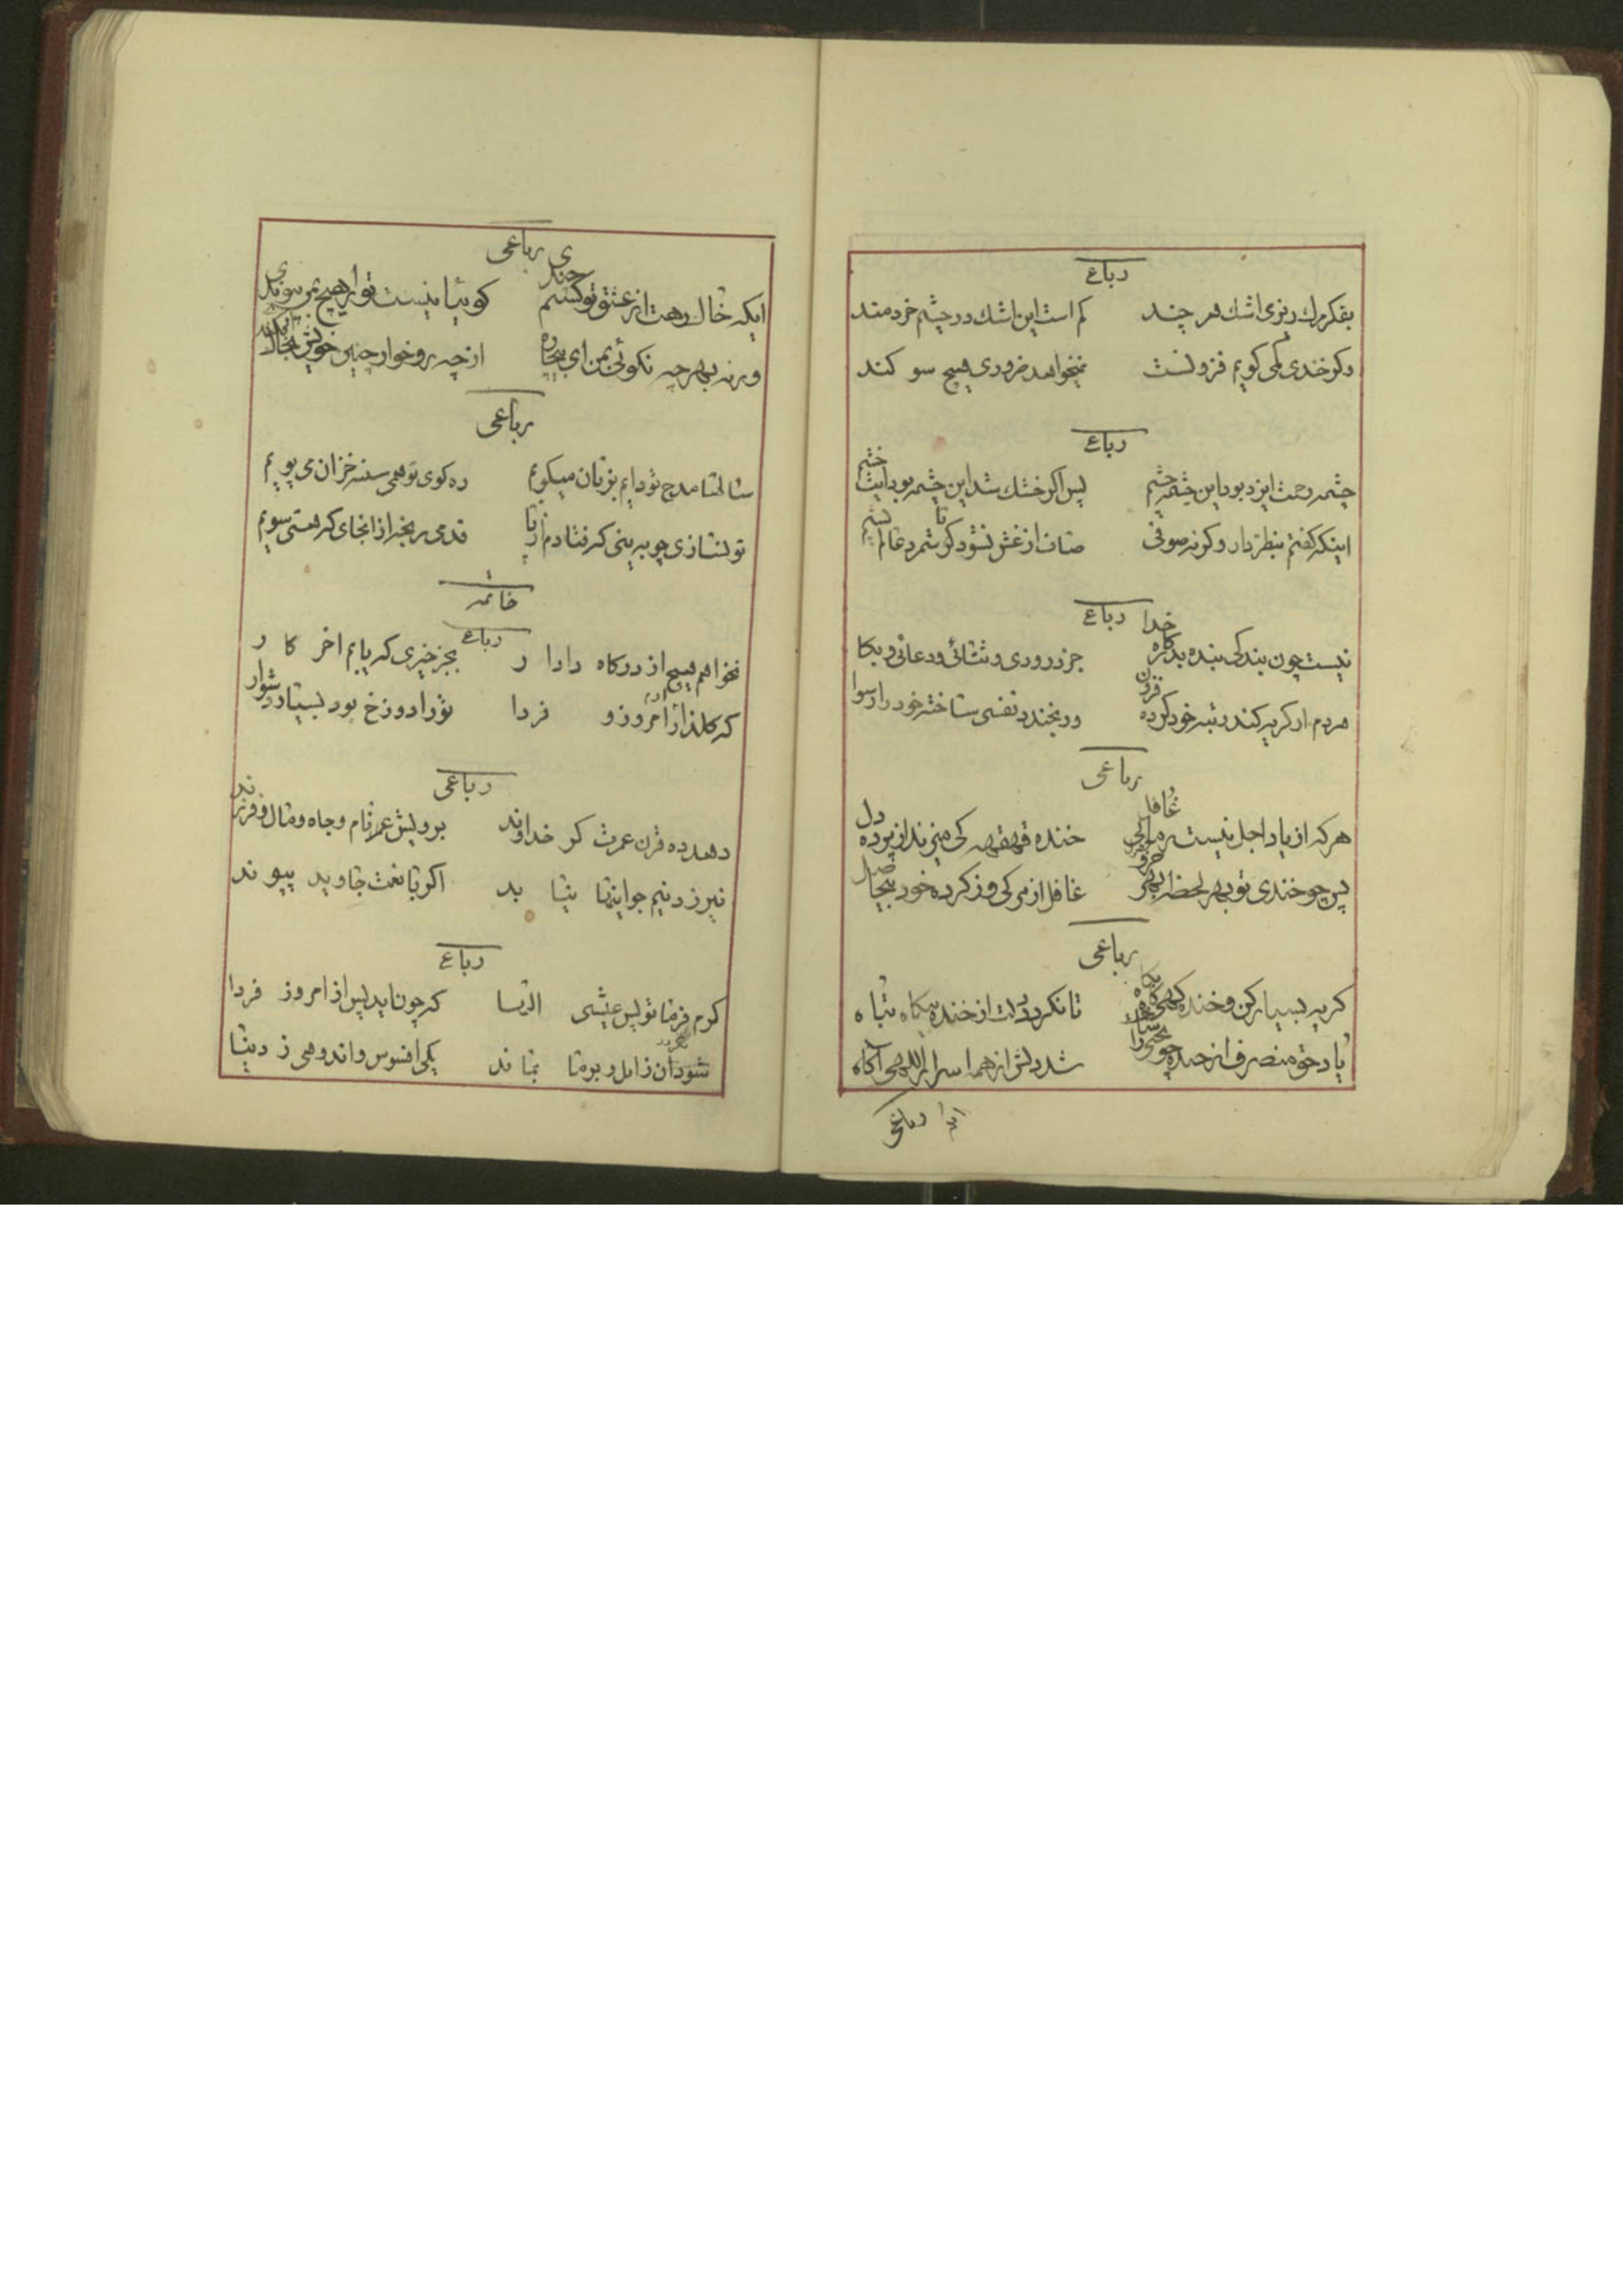 رباع
بفکر مرك ریزی اشك هر چند کم است این اشك در چشم خردمند
وکر خندی کمی کویم فزونست نمیخواهد ضروری هیچ سو کند
رباع
چشمه رحمت ایزد بود این چشمه چشم پس اکر خشك شد این چشمه بود ایت خشم
اینکه کفتم بنظر دار وکرنه صوفی صاف از غش نشود کو شمرد عالم پشم
رباع
نیست چون بندکی بنده بدرکاه خدا جز درودی و ثنائی و دعائی و بکا
مردم ار کریه کند رتبه خود کرده فزون ور بخندد نفسی ساخته خود را رسوا
رباعی
هرکه از یاد اجل نیست غافل خنده قهقهه کی میزند از پرده دل
پس چو خندی تو بهر لحظه غافل از مرکی وز کرده خود بیحاصل
رباعی
کریه بسیار کن و خنده کهی تا نکردد دلت از خنده بیکاه تباه
یاد حق منصرف از خنده شد دلش از همه اسرار الهی آکاه
ایضا رباعی
رباعی
ایکه خال رهت از عشق تو کشتم چندی کوئیا نیست تو را هیچ بمن پیوندی
ورنه بهر چه نکوئی بمن ای بیچاره از چه رو خوار چنین خویش بخاك افکندی
رباعی
سالها مدح تو دایم بزبان میکویم ره کوی تو همی سنه خزان می پویم
تو نسازی چو به بینی که فتادم از پا قدمی رنجه از انجای که هستی سویم
خاتمه
رباع
نخواهم هیچ از درکاه دادا ر بجز خیری که یابم اخر کا ر
که کلذار امروز و فردا تو را دوزخ بود بسیار دشوار
رباعی
دهد ده قرن عمرت کر خداوند بر و بیش عمر تام و جاه و مال و فرزند
نیرزد نیم جو اینها بنا بد اکر با نعمت جاوید پیو ند
رباع
کرم فرما تو پس عیشی الیسا که چون اید پس از امروز فردا
شود ان زایل و برما بما ند یکی افسوس و اندوهی ز دنیا